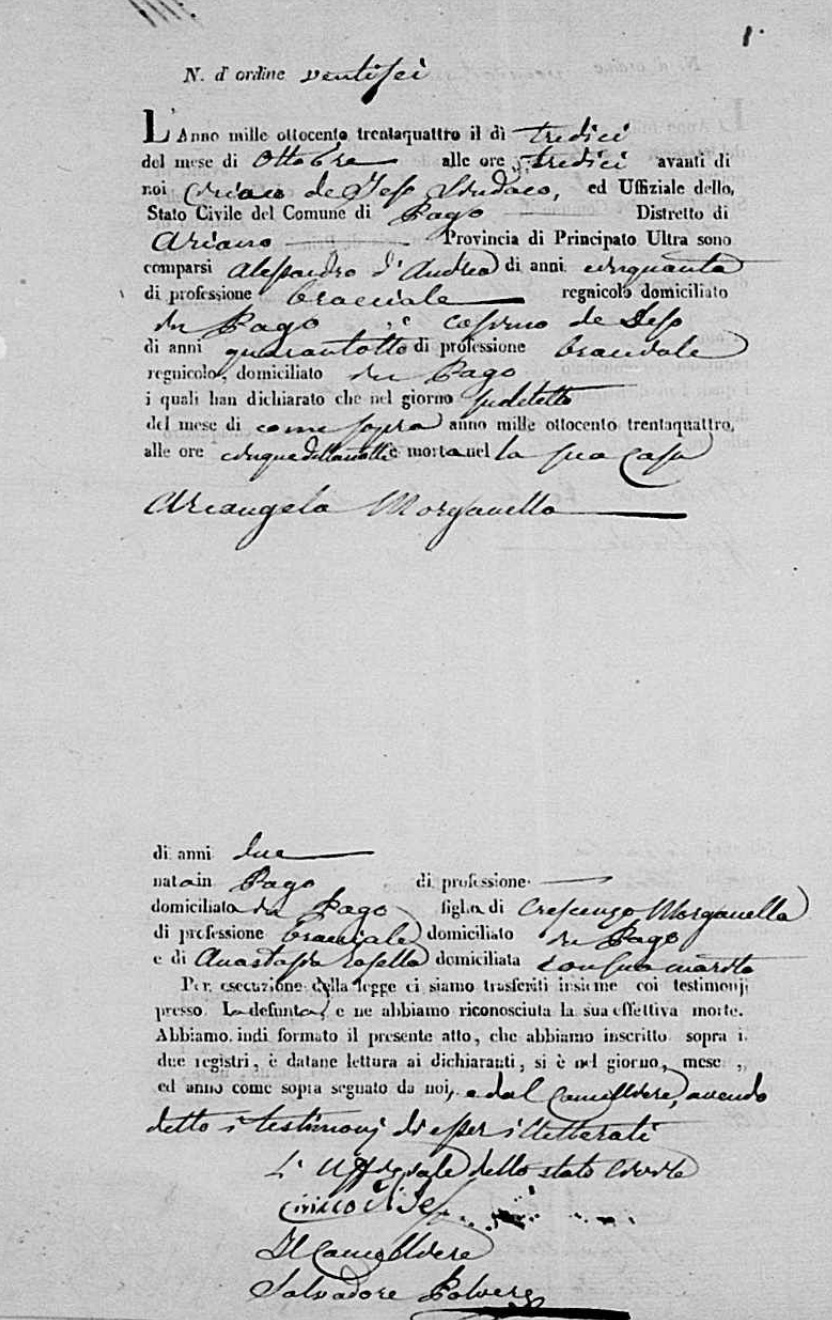 1.
N. d'ordine ventisei
L'Anno mille ottocento trentaquattro il dì tredici
del mese di Ottobre alle ore tredici avanti di
noi Ciriaco de Jeso Sindaco, ed Uffiziale dello,
Stato Civile del Comune di Pago Distretto di
Ariano Provincia di Principato Ultra sono
comparsi Alessandro d'Andrea di anni cinquanta
di professione bracciale regnicolo domiciliato
in Pago, e Cosimo de Jeso
di anni quarantotto di professione bracciale
regnicolo, domiciliato in Pago
i quali han dichiarato che nel giorno sudetto
del mese di come sopra anno mille ottocento trentaquattro,
alle ore cinque della notte è morta nel la sua casa
Arcangela Morganella
di anni due
nata in Pago di professione
domiciliata in Pago figlia di Crescenzo Morganella
di professione bracciale domiciliato in Pago
e di Anastasia domiciliata con suo marito
Per esecuzione della legge ci siamo trasferiti insieme coi testimonj
presso la defunta, e ne abbiamo riconosciuta la sua effettiva morte.
Abbiamo indi formato il presente atto, che abbiamo inscritto sopra i
due registri, è datane lettura ai dichiaranti, si è nel giorno, mese,
ed anno come sopra segnato da noi, e dal Cancelliere, avendo
detto i testimonj di esser illetterati
L'Uffiziale dello stato Civile
Ciriaco de Jeso
Il Cancelliere
Salvadore Polvere